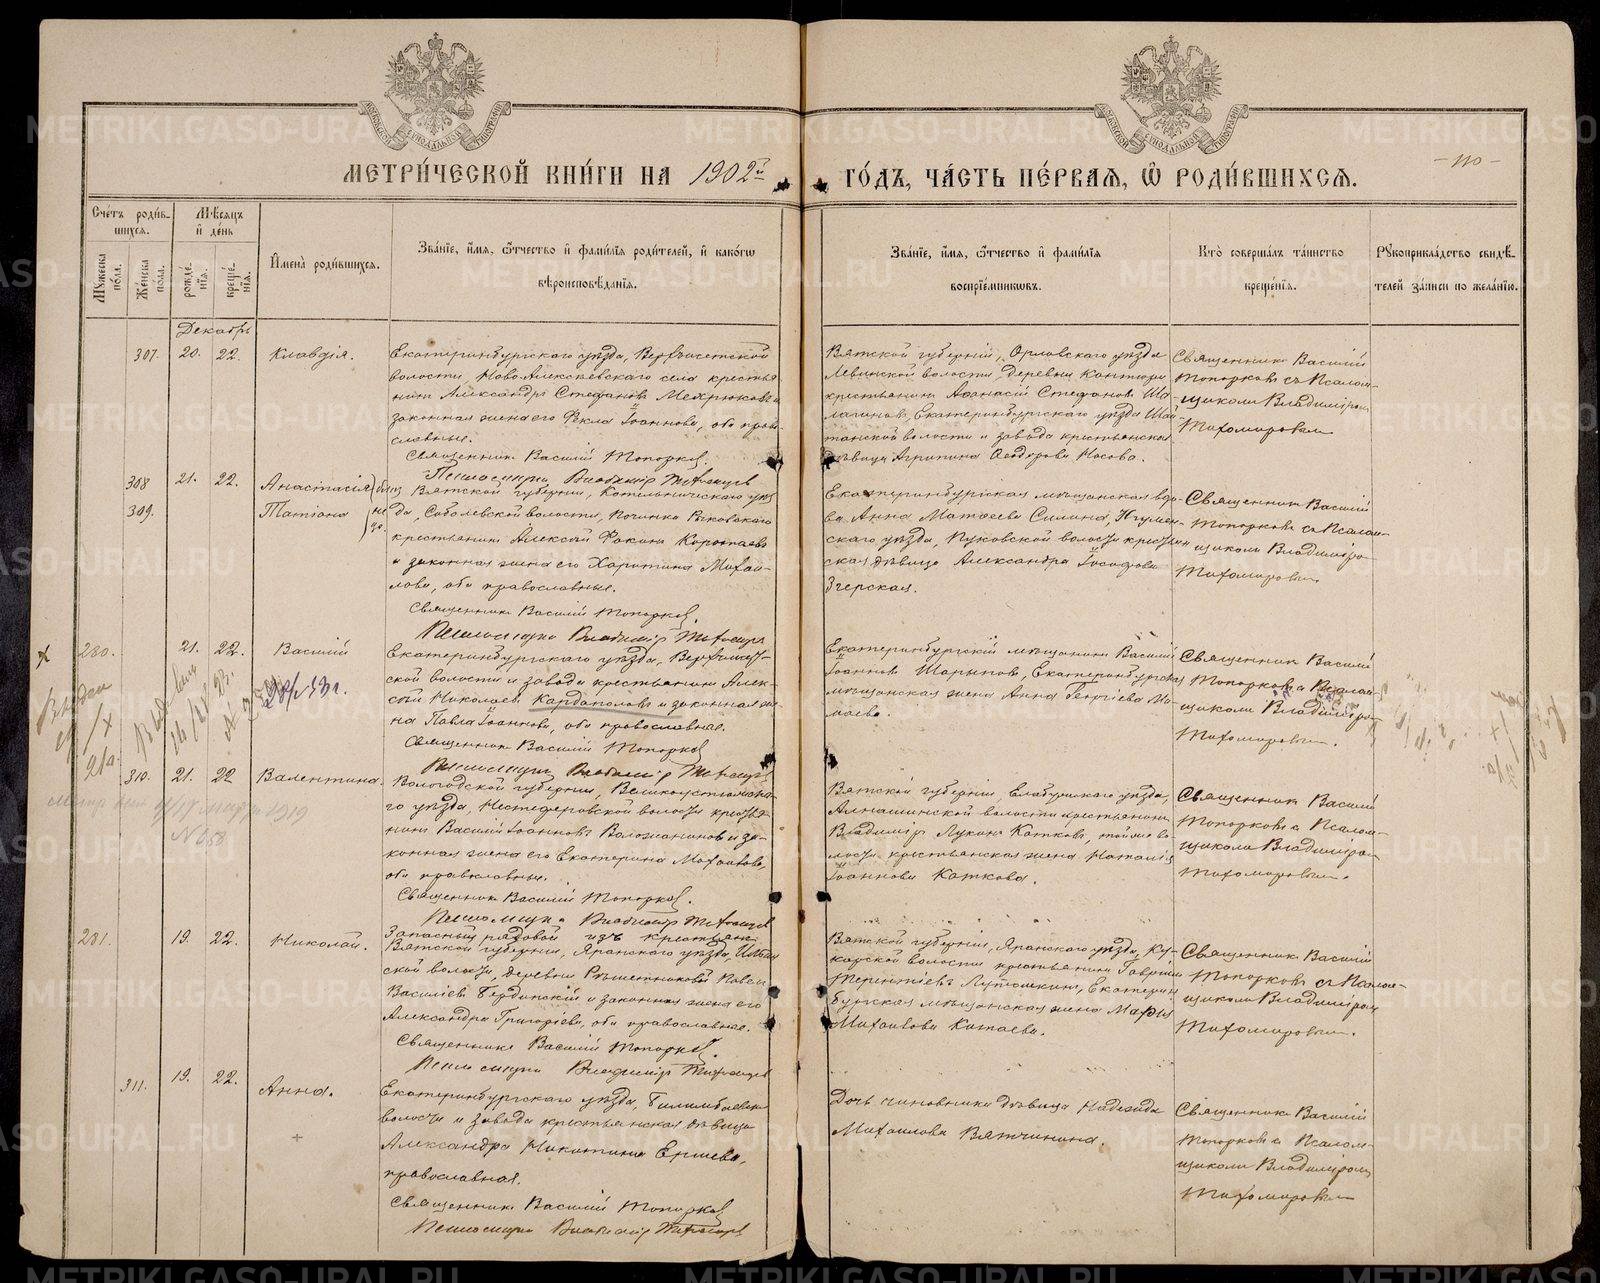 МЕТРИ́ЧЕСКОЙ КНИ́ГИ НА 1902й
ГО́ДЪ, ЧА́СТЬ ПЕ́РВАЯ, Ѿ РОДИ́ВШИХСѦ.
– 110 –
Сче́тъ роди́в-
шихсѧ.
Мѣ́сѧцъ
и де́нь
Мꙋ́жеска
по́ла.
Же́нска
по́ла.
рожде́-
нїѧ.
креще́-
нїѧ.
Имена̀ роди́вшихсѧ.
Зва́нїе, и́мѧ, ѻ҆́тчество и҆ фами́лїѧ роди́телей, и҆ како́гѡ
вѣроисповѣ́данїѧ.
Зва́нїе, и́мѧ, ѻ҆́тчество и҆ фами́лїѧ
воспрїе́мникѡвъ.
Кто̀ соверша́лъ та́инство
креще́нїѧ.
Рꙋкоприкла́дство свидѣ́-
телей за́писи по жела́нїю.
Декабрь
307. 20. 22. Клавдія.
Екатеринбургскаго уѣзда, Верхъисетской
волости Ново-Алексѣевскаго села крестья-
нинъ Александръ Стефановъ Мехрюковъ и
законная жена его Фекла Іоаннова, оба право-
славные.
Священникъ Василій Топорковъ.
Псаломщикъ Владиміръ Тихомировъ
Вятской губерніи, Орловскаго уѣзда
Левинской волости, деревни
крестьянинъ Аѳанасій Стефановъ Ша-
лагиновъ, Екатеринбургскаго уѣзда Шай-
танской волости и завода крестьянская
дѣвица Агрипина Ѳеодорова Носова.
Священникъ Василій
Топорковъ съ Псалом-
щикомъ Владиміромъ
Тихомировымъ
308 21. 22. Анастасія
309. Татіана
близ
не
цы
Вятской губерніи, Котельническаго уѣз-
да, Соболевской волости, Починка
крестьянинъ Алексѣй Фокинъ Коротаевъ
и законная жена его Харитина Михаи-
лова, оба православные.
Священникъ Василій Топорковъ
Псаломщикъ Владиміръ Тихомировъ
Екатеринбургская мѣщанская вдо-
ва Анна Матѳеева Силина, Нгумен-
скаго уѣзда, Пуховской волости крестьян-
ская дѣвица Александра Іосифова
Згерская.
Священникъ Василій
Топорковъ съ Псалом-
щикомъ Владиміро-
Тихомировым
280. 21. 22. Василій
Екатеринбургскаго уѣзда, Верхъисет-
ской волости и завода крестьянинъ Алек-
сѣй Николаевъ Кардаполовъ и законная же-
на Павла Іоаннова, оба православные.
Священникъ Василій Топорковъ
Псаломщикъ Владиміръ Тихомировъ
Екатеринбургскій мѣщанинъ Василій
Іоанновъ Шарыповъ, Екатеринбургская
мѣщанская жена Анна Георгіева Ма-
маева.
Священникъ Василій
Топорковъ съ Псалом-
щикомъ Владиміро-
Тихомировым.
310. 21. 22 Валентина.
1919
Вологодской губерніи, Великоустюжска-
го уѣзда, Нестеферовской волости крестья-
нинъ Василій Іоанновъ Воложаниновъ и за-
конная жена его Екатерина Михаилова,
оба православные.
Священникъ Василій Топорковъ.
Псаломщикъ Владиміръ Тихомировъ
Вятской губерніи, Елабужскаго уѣзда,
Алнашинской волости крестьянинъ
Владиміръ Лукинъ Катковъ, той же во-
лости крестьянская жена Наталія
Іоаннова Каткова.
Священникъ Василій
Топорковъ съ Псалом-
щикомъ Владиміро-
Тихомировым.
281. 19. 22. Николай.
Запасный рядовой изъ крестьянъ
Вятской губерніи, Яранскаго уѣзда,
ской волости, деревни Рѣшетниковой Павелъ
Васильевъ Бердинскій и законная жена его
Александра Григоріева, оба православные.
Священникъ Василій Топорковъ.
Псаломщикъ Владиміръ Тихомировъ
Вятской губерніи, Яранскаго уѣзда, Ку-
карской волости крестьянинъ Гавріилъ
Терентіевъ Лутошкинъ, Екатерин-
бургская мѣщанская жена Марія
Михаилова Катаева.
Священникъ Василій
Топорковъ съ Псалом-
щикомъ Владиміромъ
Тихомировым.
311. 19. 22. Анна.
Екатеринбургскаго уѣзда, Билимбаевск-
волости и завода крестьянская дѣвица
Александра Никитина Ершева,
православная.
Священникъ Василій Топорковъ
Псаломщикъ Владиміръ Тихомировъ
Дочь чиновника дѣвица Надежда
Михаилова Вятчинина.
Священникъ Василій
Топорковъ съ Псалом-
щикомъ Владиміромъ
Тихомировым
METRIKI.GASO-URAL.RU